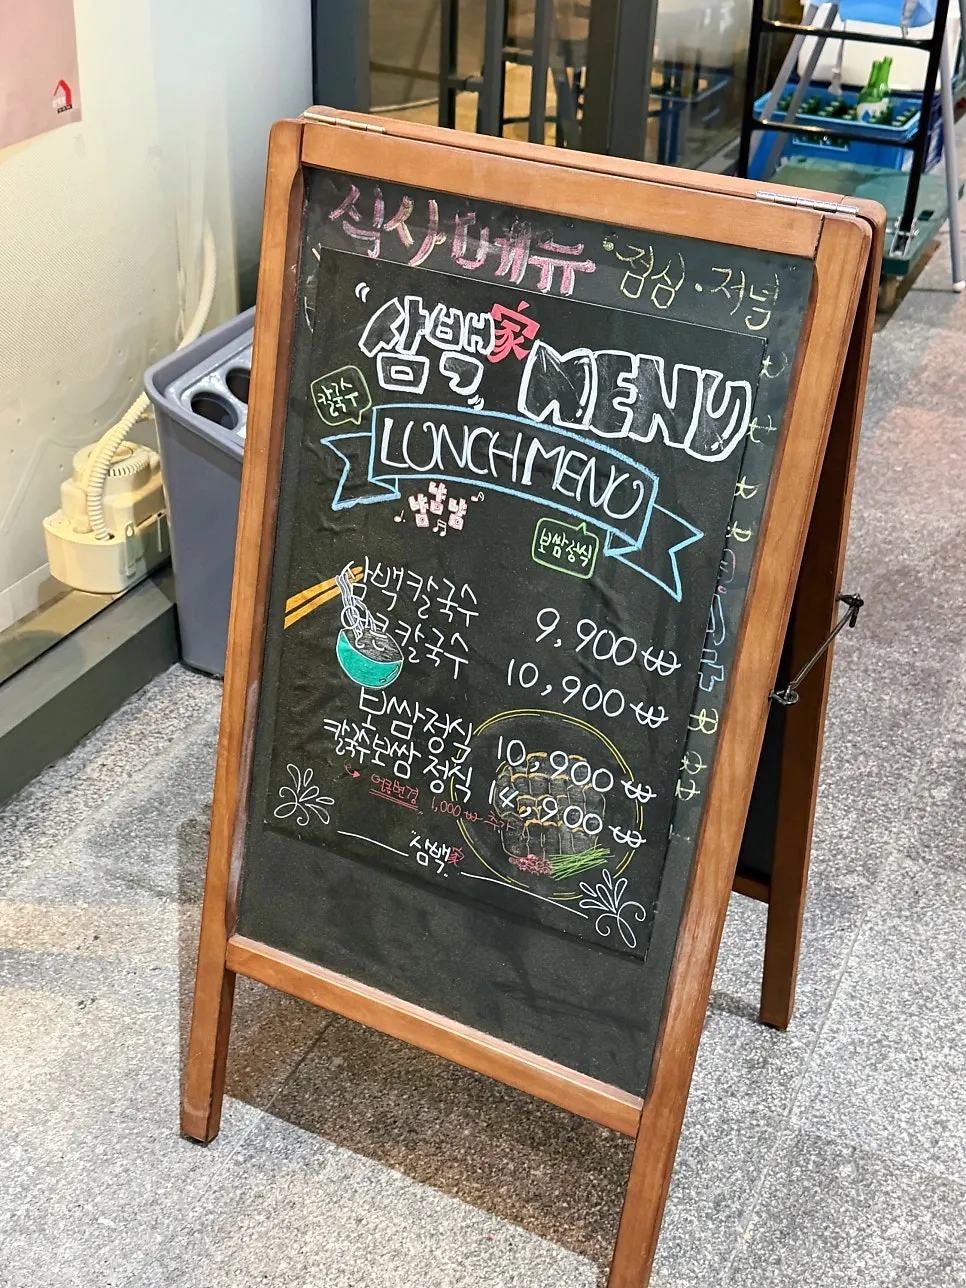 식사메뉴 점심·저녁
삼백家 MENU
칼국수
LUNCH MENU
냠냠냠
보쌈정식
삼백칼국수 9,900₩
칼국수 10,900₩
보쌈정식 10,900₩
칼국수보쌈 정식 14,900₩
변경 1,000₩ 추가
"삼백家"